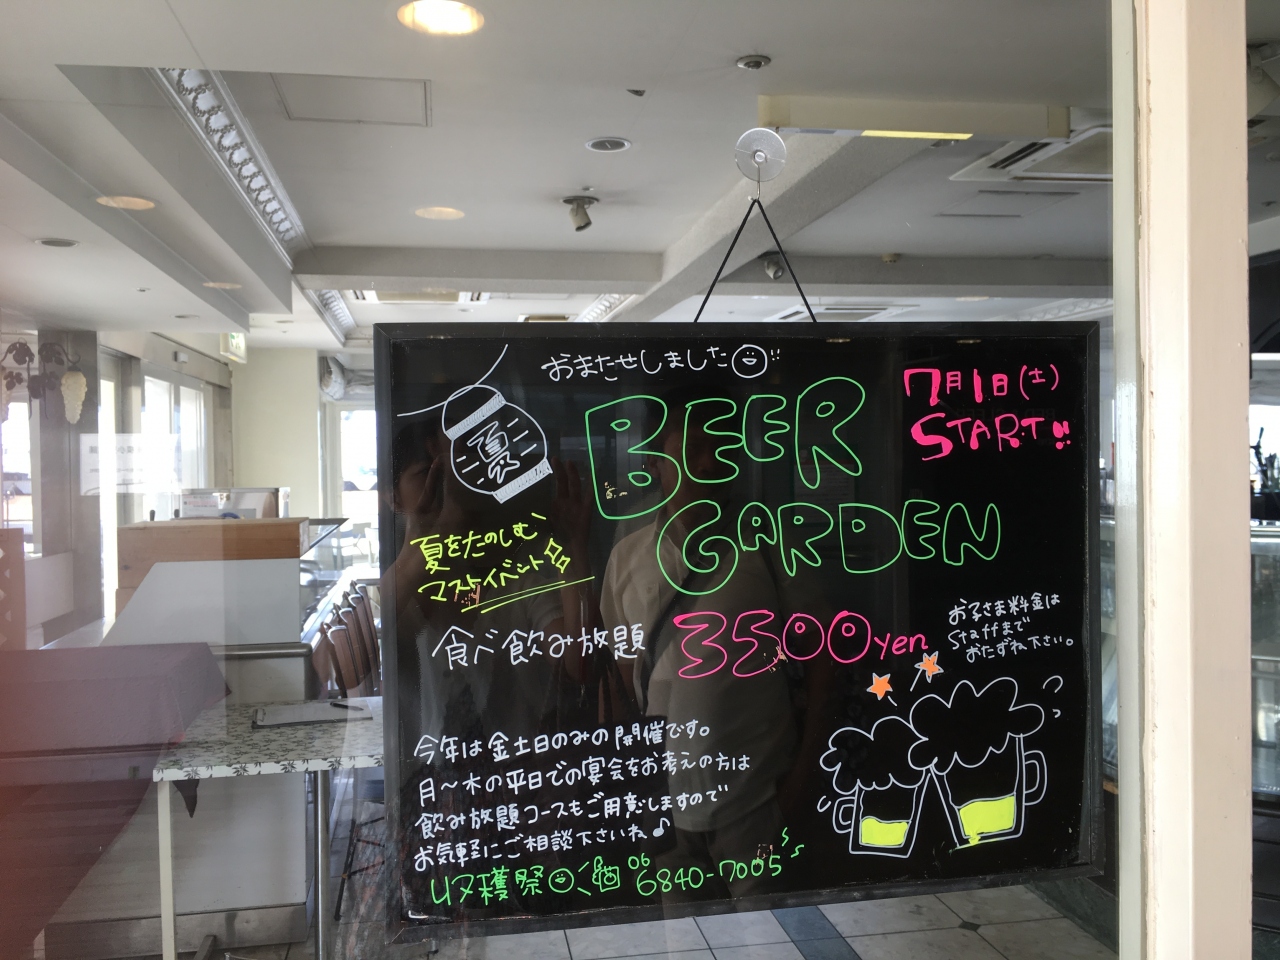 おまたせしました!!
BEER
GARDEN
7月1日(土)
START!!
夏
夏をたのしむ
マストイベント
食べ飲み放題
3500yen
お子さま料金は
Staffまで
おたずね下さい。
今年は金土日のみの開催です。
月〜木の平日での宴会をお考えの方は
飲み放題コースもご用意しますので
お気軽にご相談下さいね♪
収穫祭
06
6840-7005